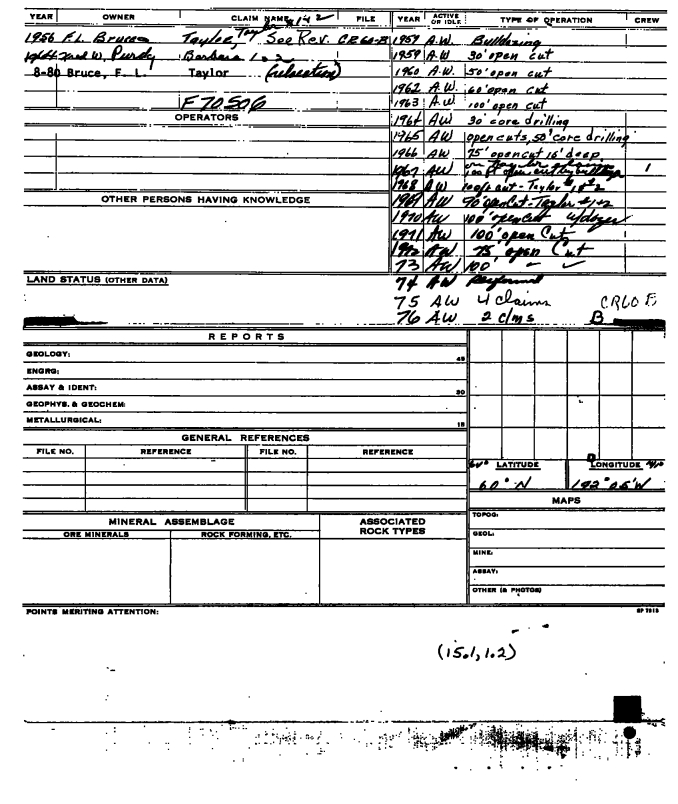 YEAR OWNER CLAIM NAME FILE
1956 F.L. Bruce Taylor, Tay 1 & 2 See Rev. CR60-B
W. Purdy Barbara 1 & 2
8-80 Bruce, F. L. Taylor (relocation)
F 70506
OPERATORS
OTHER PERSONS HAVING KNOWLEDGE
LAND STATUS (OTHER DATA)
YEAR ACTIVE OR IDLE TYPE OF OPERATION CREW
1957 A.W. Bulldozing
1959 A.W. 30' open cut
1960 A.W. 50' open cut
1962 A.W. 60' open cut
1963 A.W 100' open cut
1964 AW 30' core drilling
1965 AW open cuts, 50' core drilling
1966 AW 75' opencut 15' deep
1967 AW 100 ft open cut by 1
1968 AW 100ft cut - Taylor #1, #2
1969 AW 90' open Cut - Taylor #1+2
1970 AW 100' opencut w/dozer
1971 AW 100' open Cut
1972 AW 75' open Cut
73 AW 100' " ✓
74 AW
75 AW 4 Claims CR60 E
76 AW 2 clms B
REPORTS
GEOLOGY: 45
ENGRG:
ASSAY & IDENT: 30
GEOPHYS. & GEOCHEM:
METALLURGICAL: 15
GENERAL REFERENCES
FILE NO. REFERENCE FILE NO. REFERENCE
LATITUDE LONGITUDE
60° N 142° 05' W
MAPS
TOPOG:
GEOL:
MINE:
ASSAY:
OTHER (& PHOTOS)
MINERAL ASSEMBLAGE
ORE MINERALS ROCK FORMING, ETC.
ASSOCIATED ROCK TYPES
POINTS MERITING ATTENTION:
(15.1, 1.2)